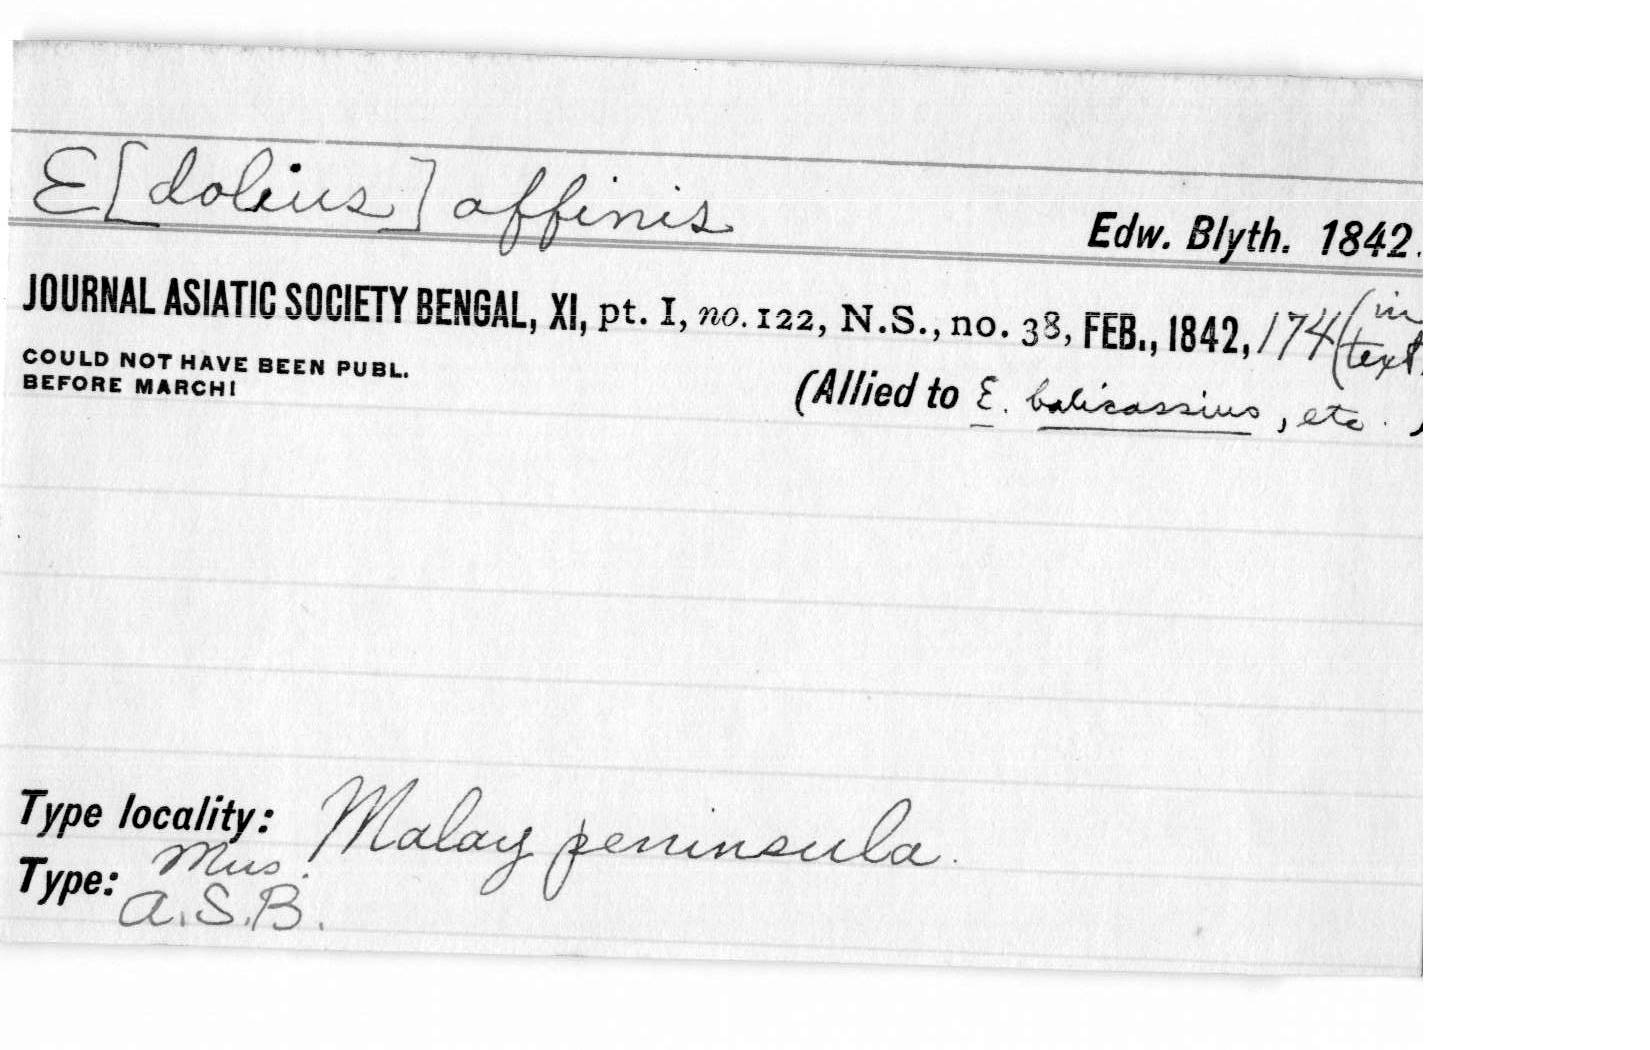 E[dolius] affinis
Edw. Blyth. 1842.
JOURNAL ASIATIC SOCIETY BENGAL, XI, pt. I, no. 122, N.S., no. 38, FEB., 1842, 174 (in text)
COULD NOT HAVE BEEN PUBL.
BEFORE MARCH!
(Allied to E. balicassius, etc.)
Type locality: Malay peninsula.
Type: Mus.
A.S.B.